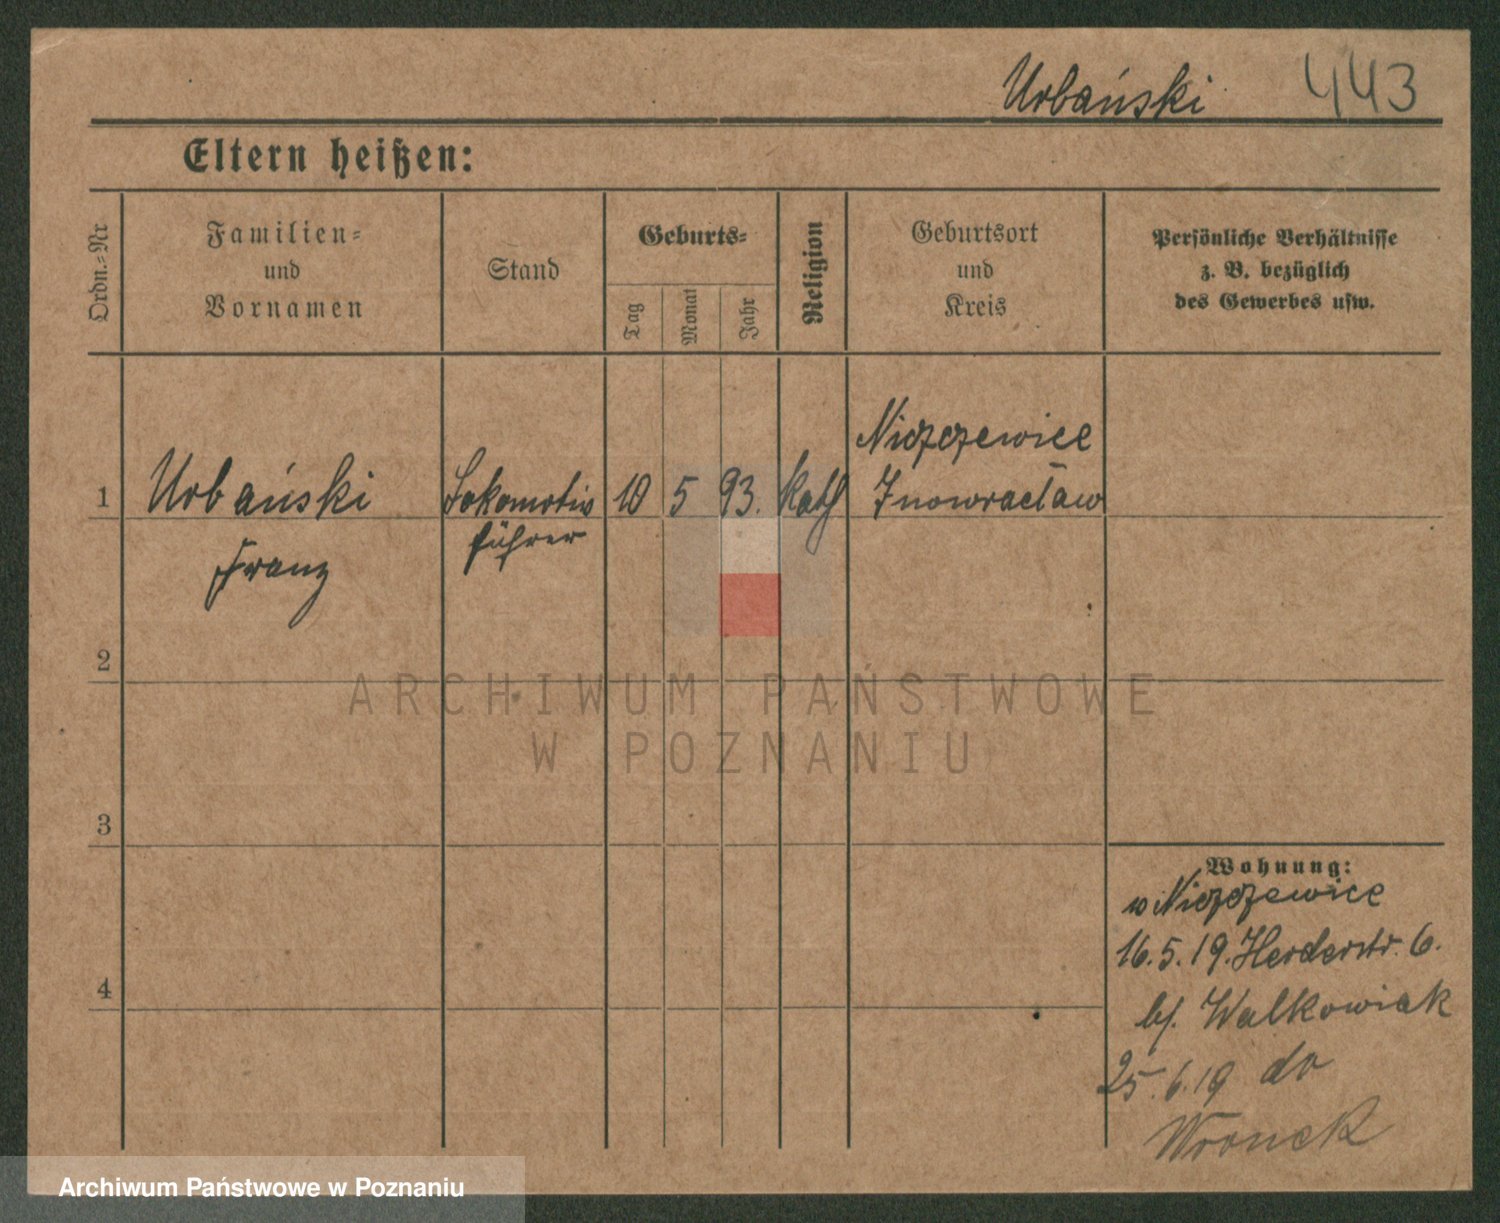 Urbański 443
Eltern heißen:
Ordn.-Nr
Familien-
und
Vornamen
Stand
Geburts-
Tag
Monat
Jahr
Religion
Geburtsort
und
Kreis
Persönliche Verhältnisse
z. B. bezüglich
des Gewerbes usw.
Niszczewice
1 Urbański Lokomotiv 10 5 93. Kath Inowracław
führer
Franz
2
ARCHIWUM PAŃSTWOWE
W POZNANIU
3
Wohnung:
w Niszczewice
16.5.19. Herderstr. 6.
4
bf. Walkowiak
25.6.19 do
Wronek
Archiwum Państwowe w Poznaniu